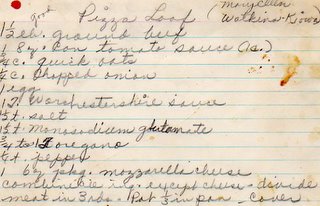 good Pizza Loaf (Maryellen
Watkins - Kiowa)
1 1/2 lb. ground beef
1 8 z. can tomato sauce (1 c.)
3/4 c. quick oats
1/4 c. chopped onion
1 egg
1 T. Worchestershire sauce
1/2 t. salt
1/2 t. Monosodium glutamate
3/4 ts oregano
1/4 t. pepper
1 6 z pkg. mozzarella cheese
combine all ing. except cheese - divide
meat in 3rds. Pat 1/3 in pan. Cover